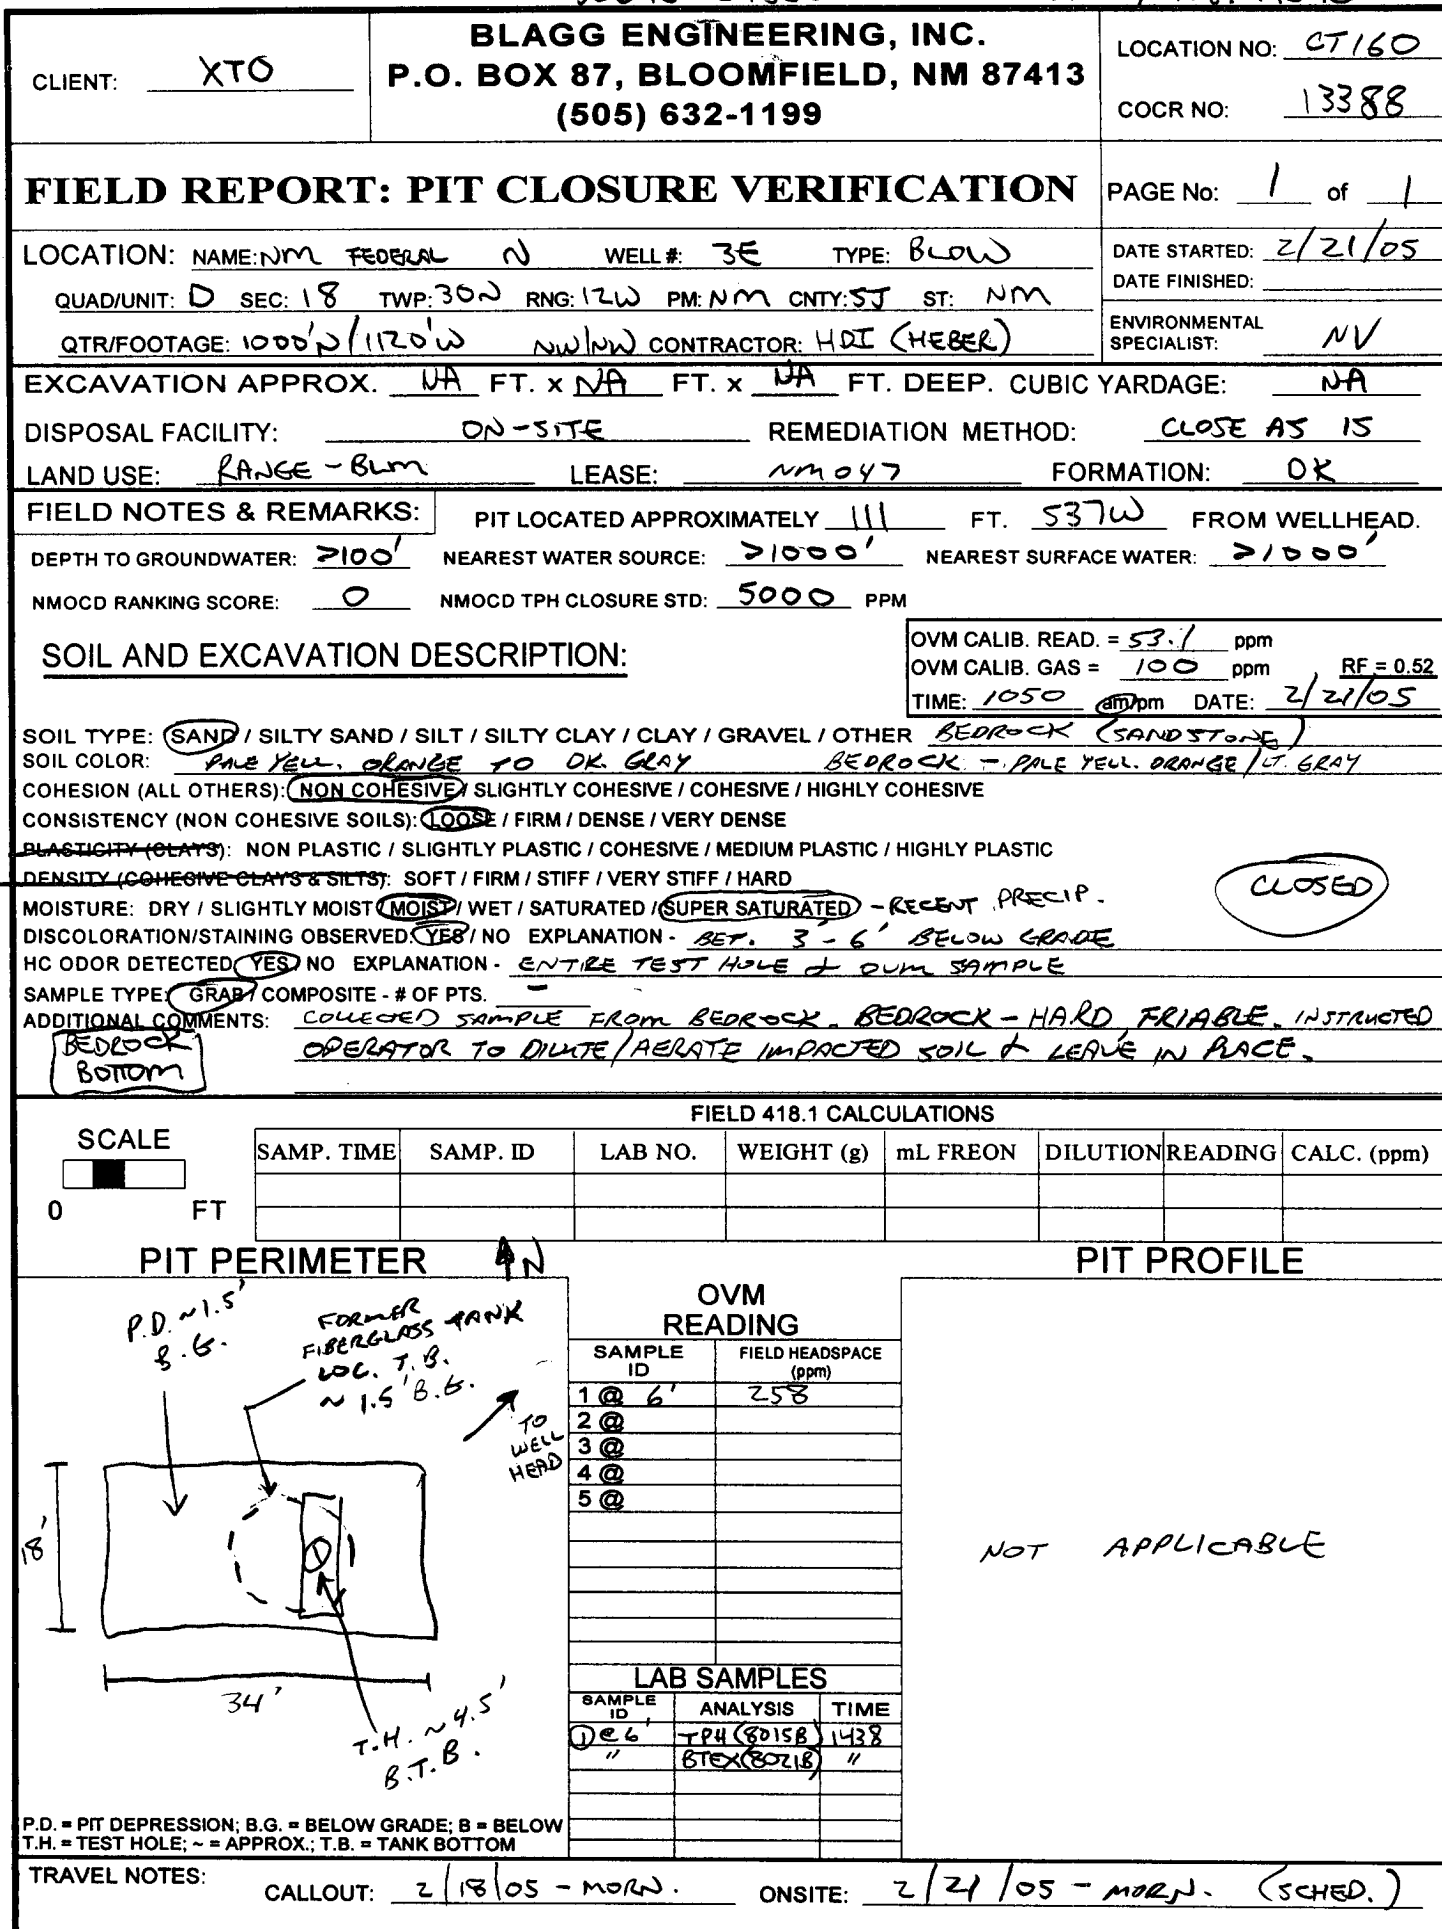 BLAGG ENGINEERING, INC.
P.O. BOX 87, BLOOMFIELD, NM 87413
(505) 632-1199
CLIENT: XTO
LOCATION NO: CT160
COCR NO: 13388
FIELD REPORT: PIT CLOSURE VERIFICATION
PAGE No: 1 of 1
LOCATION: NAME: NM FEDERAL N WELL #: 3E TYPE: BLOW
QUAD/UNIT: D SEC: 18 TWP: 30N RNG: 12W PM: NM CNTY: SJ ST: NM
QTR/FOOTAGE: 1000'N/1120'W NW/NW CONTRACTOR: HDI (HEBER)
DATE STARTED: 2/21/05
DATE FINISHED:
ENVIRONMENTAL
SPECIALIST: NV
EXCAVATION APPROX. NA FT. x NA FT. x NA FT. DEEP. CUBIC YARDAGE: NA
DISPOSAL FACILITY: ON-SITE REMEDIATION METHOD: CLOSE AS IS
LAND USE: RANGE - BLM LEASE: NM047 FORMATION: DK
FIELD NOTES & REMARKS: PIT LOCATED APPROXIMATELY 111 FT. S37W FROM WELLHEAD.
DEPTH TO GROUNDWATER: >100' NEAREST WATER SOURCE: >1000' NEAREST SURFACE WATER: >1000'
NMOCD RANKING SCORE: 0 NMOCD TPH CLOSURE STD: 5000 PPM
SOIL AND EXCAVATION DESCRIPTION:
OVM CALIB. READ. = 53.1 ppm
OVM CALIB. GAS = 100 ppm RF = 0.52
TIME: 1050 am/pm DATE: 2/21/05
SOIL TYPE: SAND / SILTY SAND / SILT / SILTY CLAY / CLAY / GRAVEL / OTHER BEDROCK (SANDSTONE)
SOIL COLOR: PALE YELL. ORANGE TO DK. GRAY BEDROCK - PALE YELL. ORANGE/LT. GRAY
COHESION (ALL OTHERS): NON COHESIVE / SLIGHTLY COHESIVE / COHESIVE / HIGHLY COHESIVE
CONSISTENCY (NON COHESIVE SOILS): LOOSE / FIRM / DENSE / VERY DENSE
PLASTICITY (CLAYS): NON PLASTIC / SLIGHTLY PLASTIC / COHESIVE / MEDIUM PLASTIC / HIGHLY PLASTIC
DENSITY (COHESIVE CLAYS & SILTS): SOFT / FIRM / STIFF / VERY STIFF / HARD
CLOSED
MOISTURE: DRY / SLIGHTLY MOIST / MOIST / WET / SATURATED / SUPER SATURATED - RECENT PRECIP.
DISCOLORATION/STAINING OBSERVED: YES / NO EXPLANATION - BET. 3'-6' BELOW GRADE
HC ODOR DETECTED: YES / NO EXPLANATION - ENTIRE TEST HOLE & OVM SAMPLE
SAMPLE TYPE: GRAB / COMPOSITE - # OF PTS. -
ADDITIONAL COMMENTS: COLLECTED SAMPLE FROM BEDROCK. BEDROCK - HARD, FRIABLE. INSTRUCTED
OPERATOR TO DILUTE/AERATE IMPACTED SOIL & LEAVE IN PLACE.
BEDROCK
BOTTOM
FIELD 418.1 CALCULATIONS
SCALE
0 FT
SAMP. TIME SAMP. ID LAB NO. WEIGHT (g) mL FREON DILUTION READING CALC. (ppm)
PIT PERIMETER N
PIT PROFILE
P.D. ~1.5'
B.G.
FORMER
FIBERGLASS TANK
LOC. T.B.
~1.5' B.G.
TO
WELL
HEAD
18'
34'
T.H. ~4.5'
B.T.B.
OVM
READING
SAMPLE ID FIELD HEADSPACE (ppm)
1 @ 6' 258
2 @
3 @
4 @
5 @
NOT APPLICABLE
LAB SAMPLES
SAMPLE ID ANALYSIS TIME
① @ 6' TPH (8015B) 1438
" BTEX (8021B) "
P.D. = PIT DEPRESSION; B.G. = BELOW GRADE; B = BELOW
T.H. = TEST HOLE; ~ = APPROX.; T.B. = TANK BOTTOM
TRAVEL NOTES: CALLOUT: 2/18/05 - MORN. ONSITE: 2/21/05 - MORN. (SCHED.)